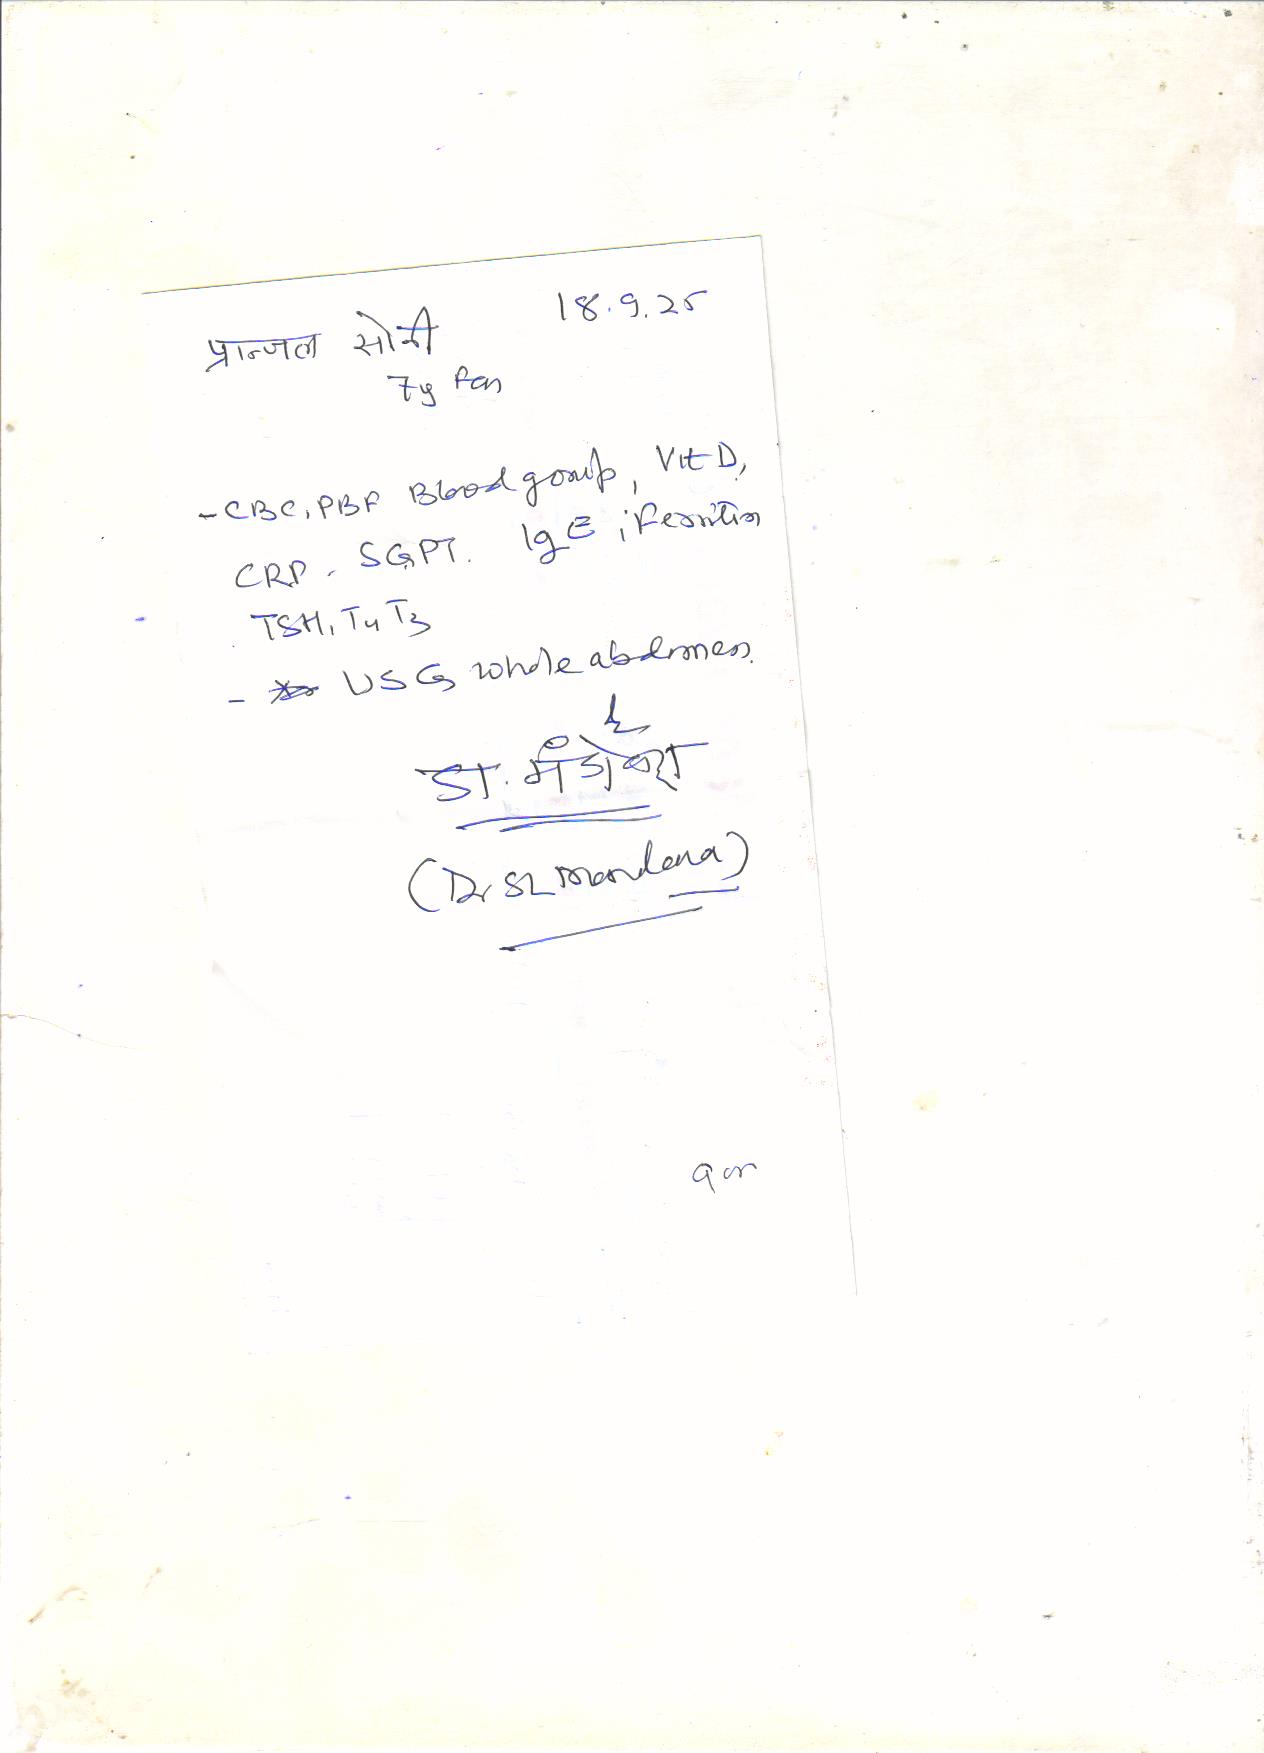 18.9.25
प्रान्जल सोनी
7y
- CBC, PBF Blood group, Vit D,
CRP, SGPT. IgE, Ferritin
TSH, T4 T3
- USG whole abdomen.
डा.
(Dr SL mandana)